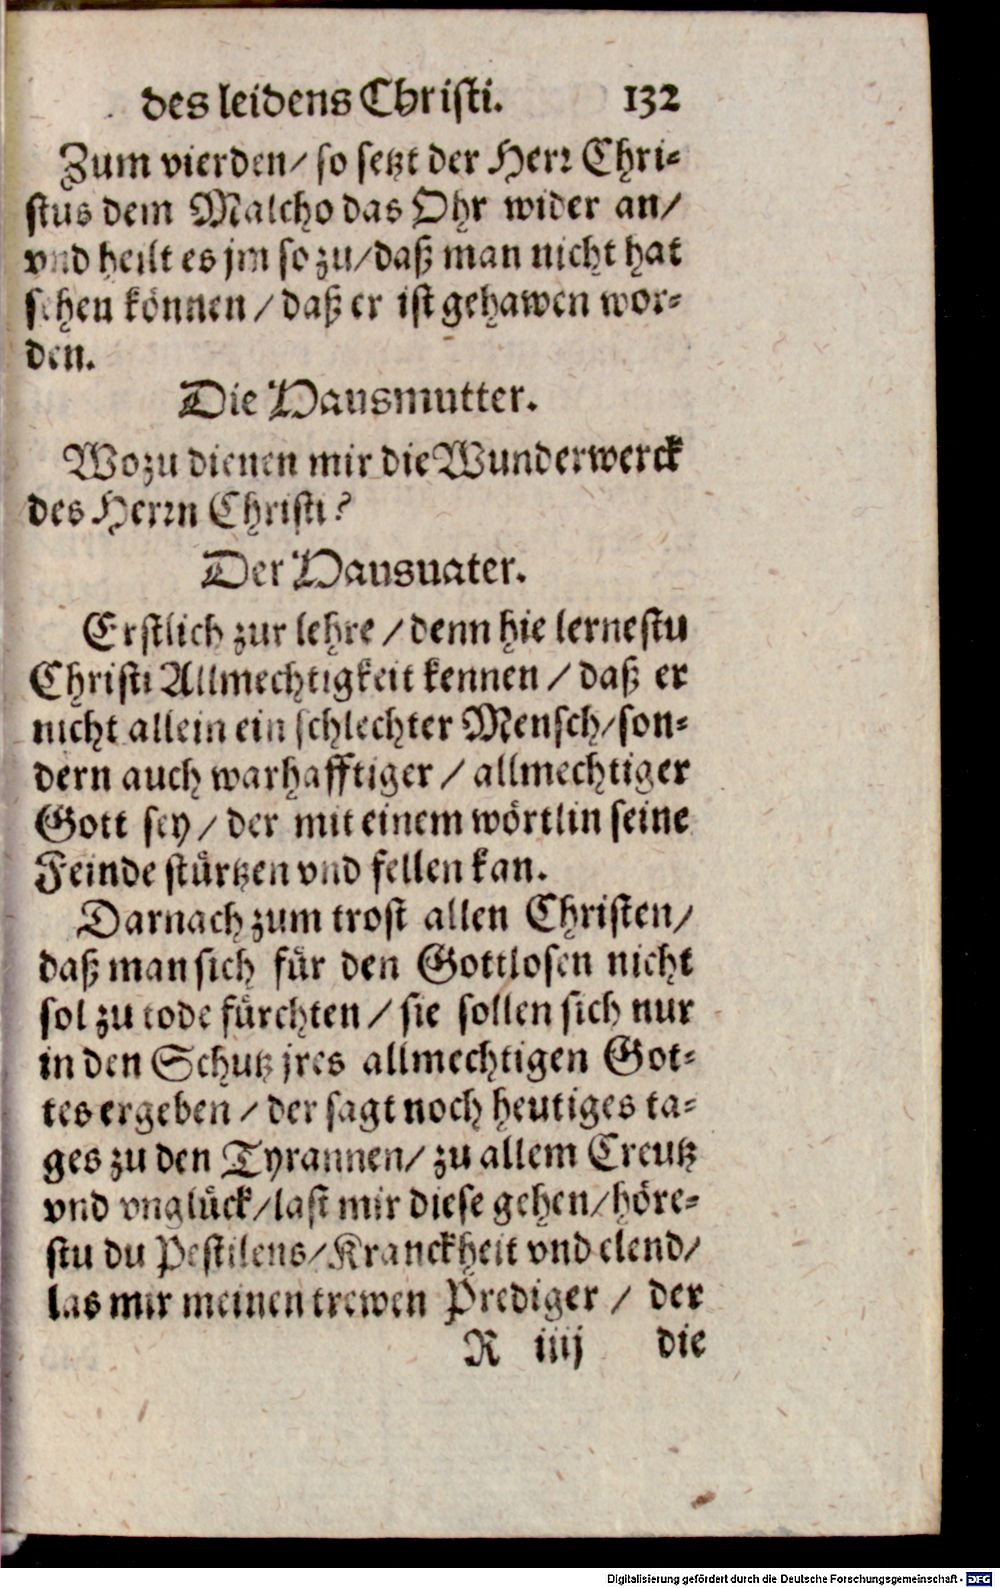 des leidens Christi. 132
Zum vierden/ so setzt der Herr Chri-
stus dem Malcho das Ohr wider an/
vnd heilt es jm so zu/daß man nicht hat
sehen können / daß er ist gehawen wor-
den.
Die Hausmutter.
Wozu dienen mir die Wunderwerck
des Herrn Christi?
Der Hausuater.
Erstlich zur lehre / denn hie lernestu
Christi Allmechtigkeit kennen / daß er
nicht allein ein schlechter Mensch/son-
dern auch warhafftiger / allmechtiger
Gott sey / der mit einem wörtlin seine
Feinde stürtzen vnd fellen kan.
Darnach zum trost allen Christen/
daß man sich für den Gottlosen nicht
sol zu tode fürchten / sie sollen sich nur
in den Schutz jres allmechtigen Got-
tes ergeben / der sagt noch heutiges ta-
ges zu den Tyrannen/ zu allem Creutz
vnd vnglück/last mir diese gehen/höre-
stu du Pestilens/Kranckheit vnd elend/
las mir meinen trewen Prediger / der
R iiij die
Digitalisierung gefördert durch die Deutsche Forschungsgemeinschaft - DFG